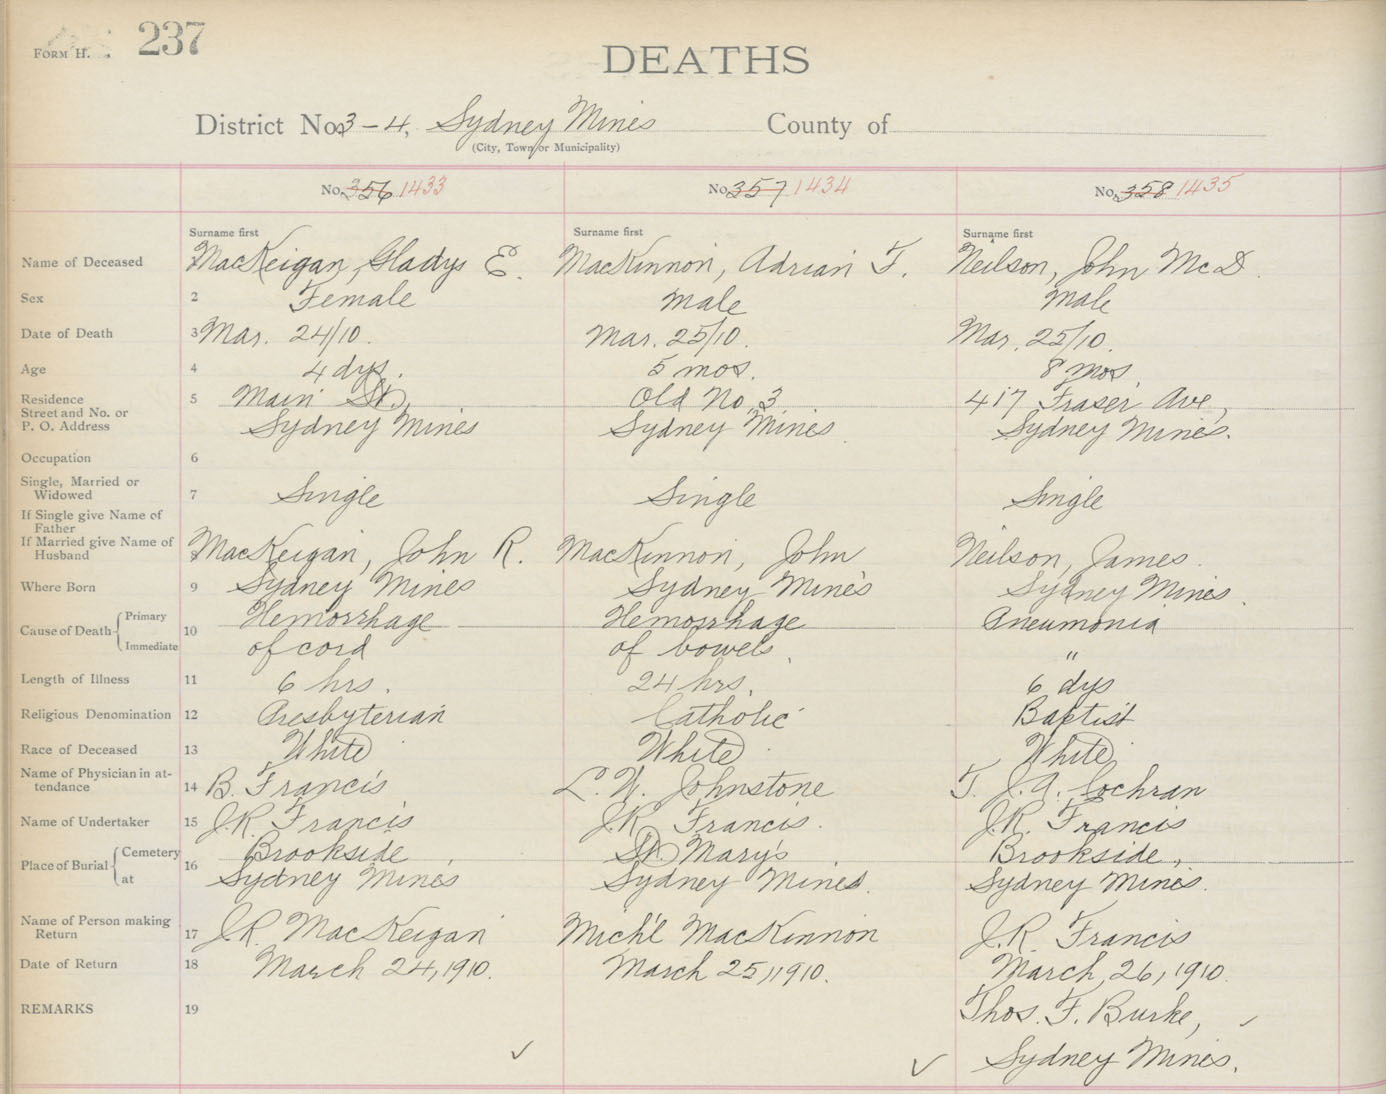 FORM H. 237
DEATHS
District No. 3-4, Sydney Mines County of
(City, Town or Municipality)
No. 356 1433 No. 357 1434 No. 358 1435
Surname first Surname first Surname first
Name of Deceased 1 MacKeigan, Gladys E. MacKinnon, Adrian F. Neilson, John McD.
Sex 2 Female Male Male
Date of Death 3 Mar. 24/10. Mar. 25/10. Mar. 25/10.
Age 4 4 dys. 5 mos. 8 mos.
Residence 5 Main St., Old No. 3 417 Fraser Ave,
Street and No. or
P. O. Address Sydney Mines Sydney Mines Sydney Mines.
Occupation 6
Single, Married or
Widowed 7 Single Single Single
If Single give Name of
Father
If Married give Name of
Husband 8 MacKeigan, John R. MacKinnon, John Neilson, James
Where Born 9 Sydney Mines Sydney Mines Sydney Mines.
Cause of Death { Primary 10 Hemorrhage Hemorrhage Pneumonia
Immediate of cord of bowels. "
Length of Illness 11 6 hrs. 24 hrs. 6 dys
Religious Denomination 12 Presbyterian Catholic Baptist
Race of Deceased 13 White White White
Name of Physician in at-
tendance 14 B. Francis L. W. Johnstone F. J. A. Cochran
Name of Undertaker 15 J.R. Francis J.R. Francis. J.R. Francis
Place of Burial { Cemetery 16 Brookside, St. Mary's Brookside,
at Sydney Mines Sydney Mines. Sydney Mines.
Name of Person making
Return 17 J.R. MacKeigan Mich'l MacKinnon J.R. Francis
Date of Return 18 March 24, 1910. March 25, 1910. March 26, 1910.
REMARKS 19 Thos. F. Burke,
Sydney Mines.